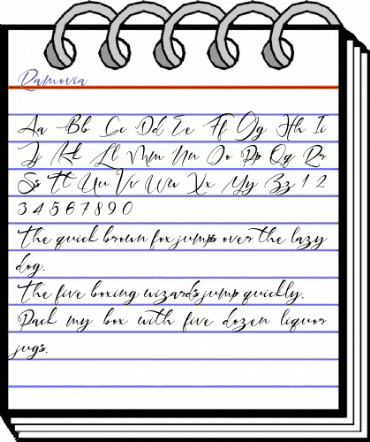 Damovia
Aa Bb Cc Dd Ee Ff Gg Hh Ii
Jj Kk Ll Mm Nn Oo Pp Qq Rr
Ss Tt Uu Vv Ww Xx Yy Zz 1 2
3 4 5 6 7 8 9 0
The quick brown fox jumps over the lazy
dog.
The five boxing wizards jump quickly.
Pack my box with five dozen liquor
jugs.